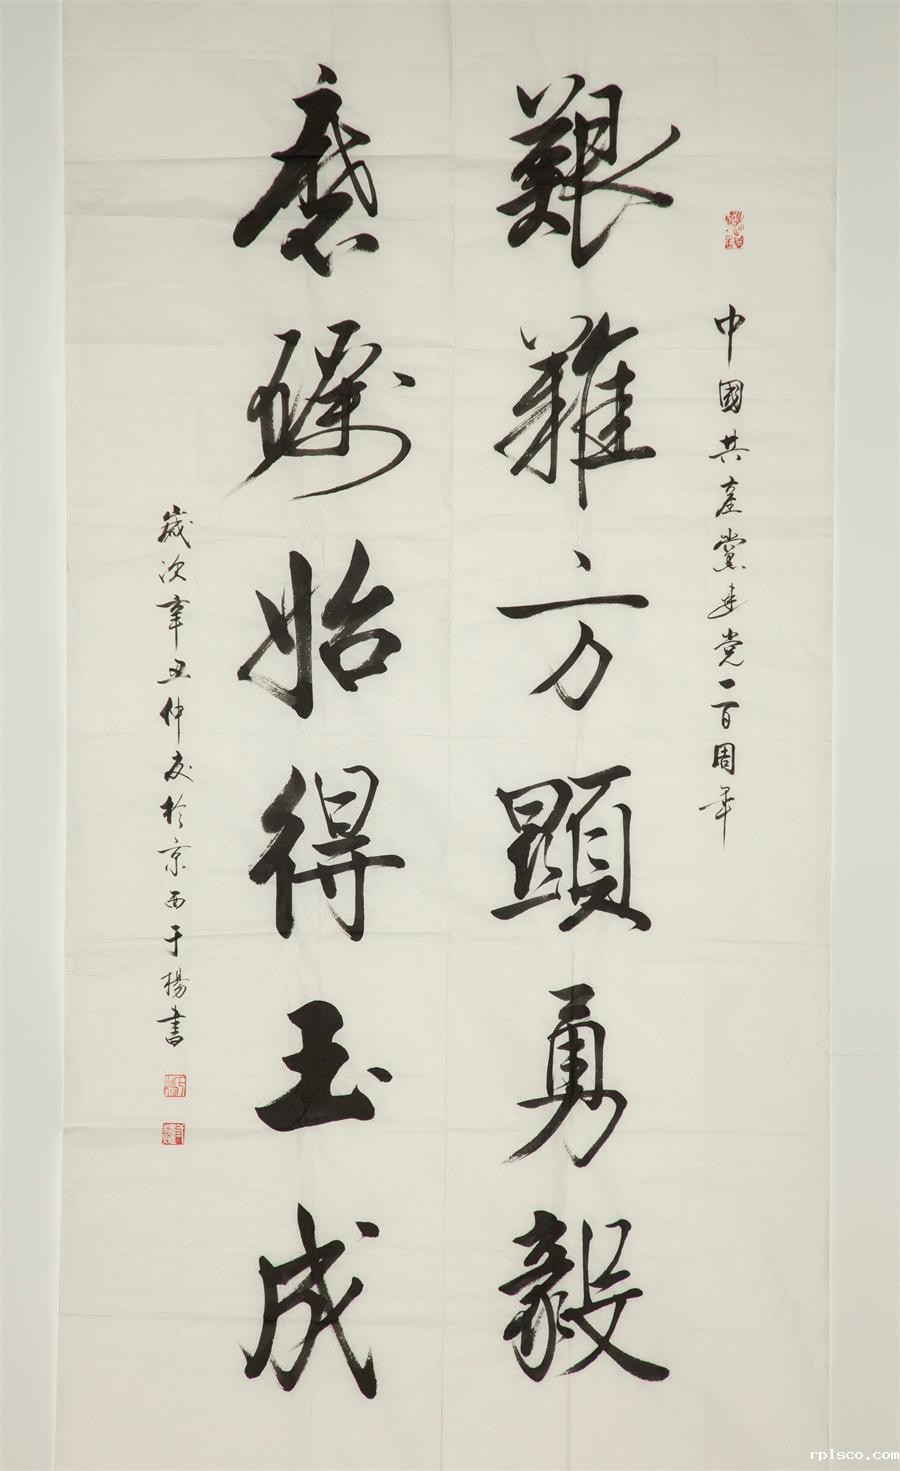 中國共產黨建党一百周年
艱難方顯勇毅
磨礪始得玉成
歲次辛丑仲夏於京西于楊書
rplsco.com